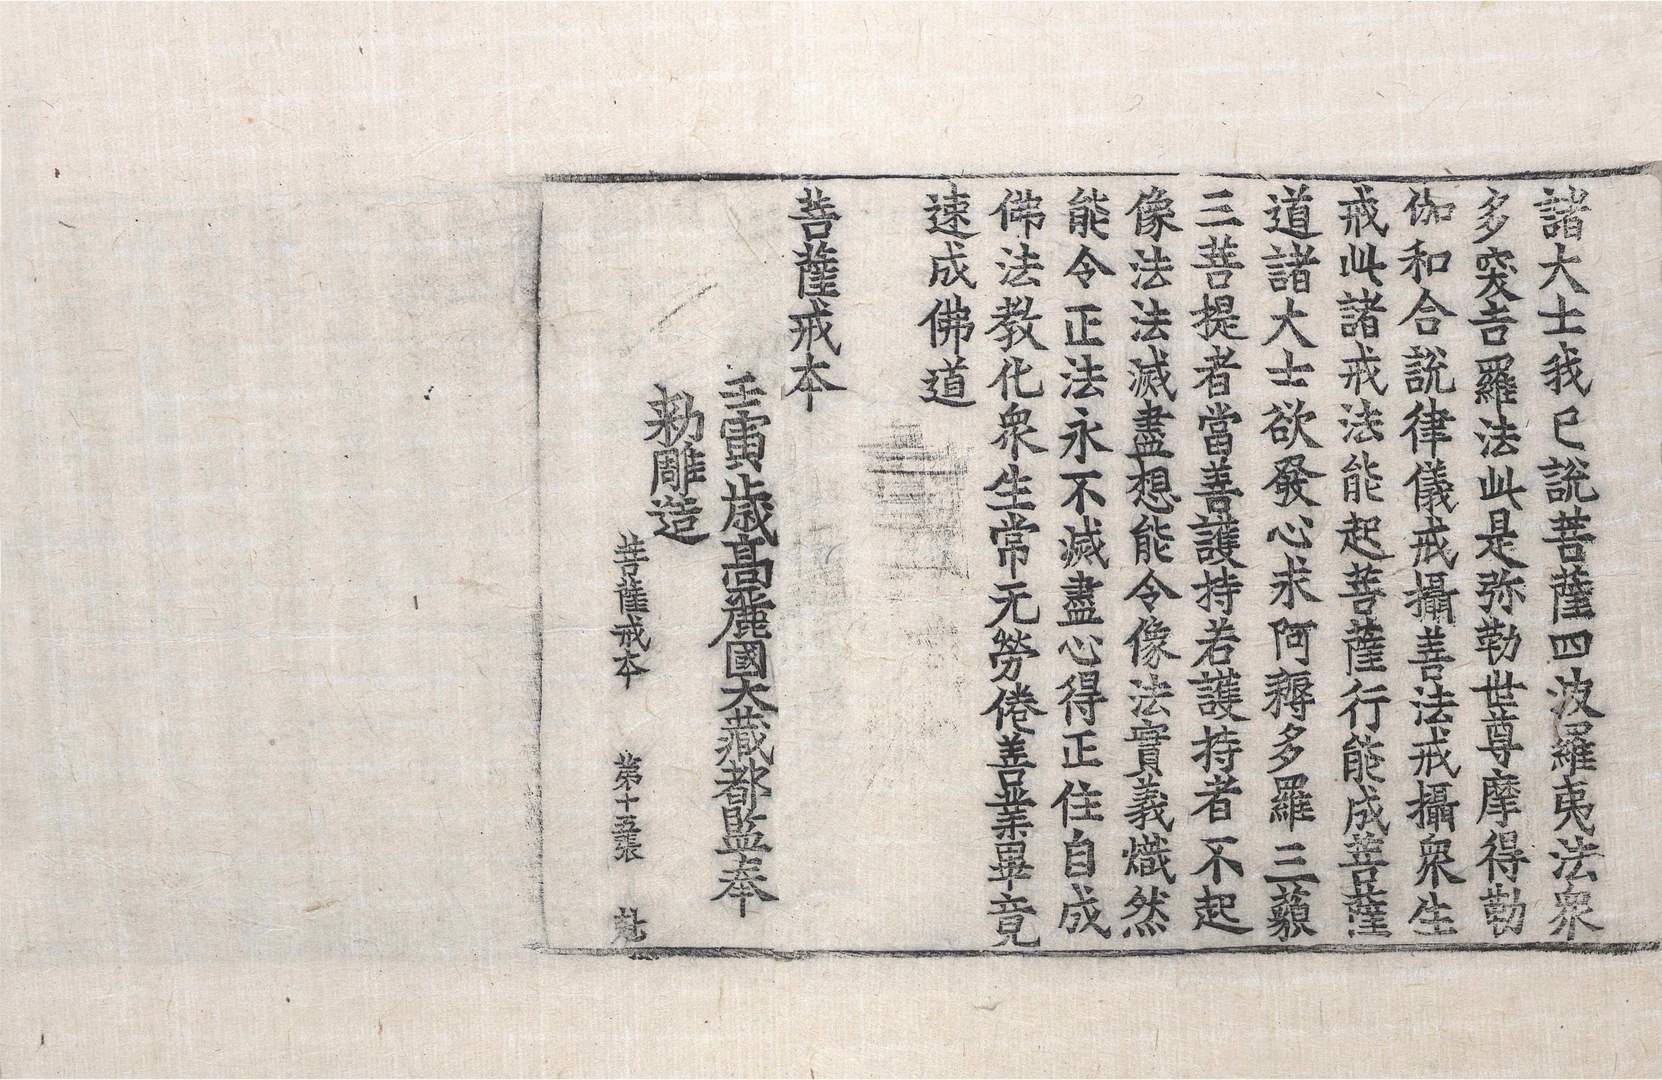 諸大士我已說菩薩四波羅夷法衆
多突吉羅法此是弥勒世尊摩得勒
伽和合說律儀戒攝善法戒攝衆生
戒此諸戒法能起菩薩行能成菩薩
道諸大士欲發心求阿耨多羅三藐
三菩提者當善護持若護持者不起
像法法滅盡想能令像法實義熾然
能令正法永不滅盡心得正住自成
佛法教化衆生常无勞倦善業畢竟
速成佛道
菩薩戒本
壬寅歲高麗國大藏都監奉
勅雕造
菩薩戒本 第十五張